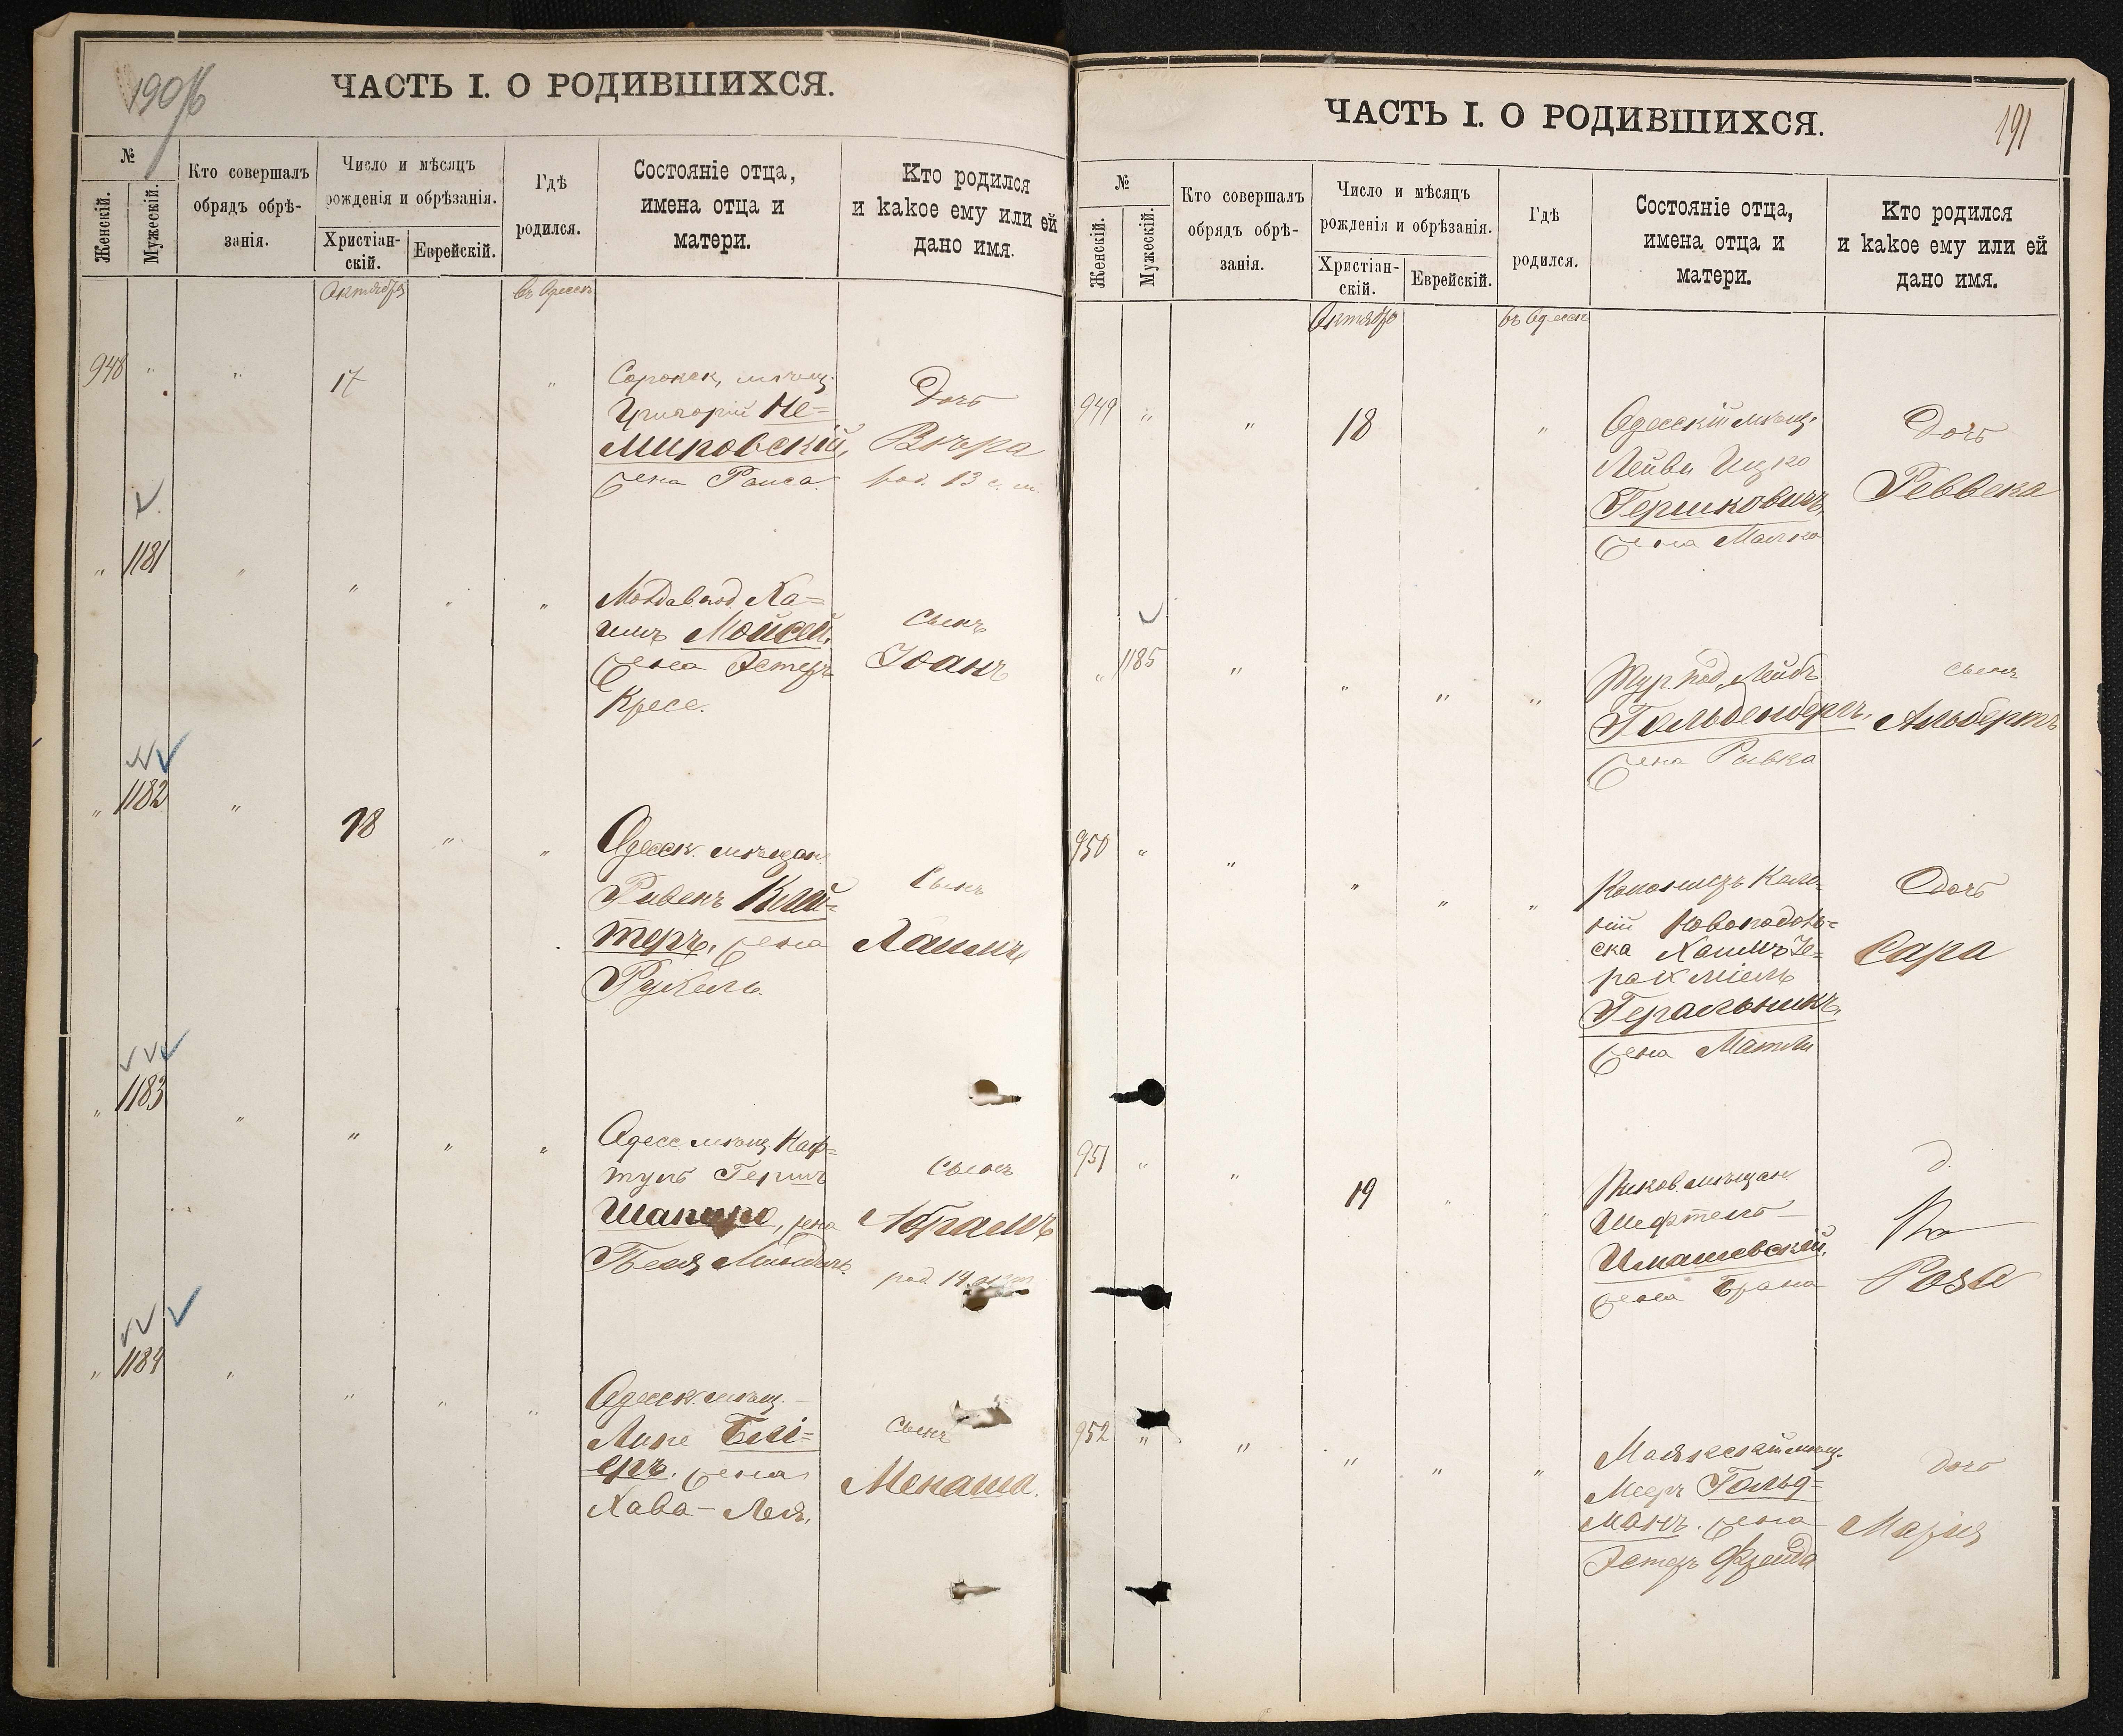 190об
ЧАСТЬ I. О РОДИВШИХСЯ.
№
Женскій.
Мужескій.
Кто совершалъ
обрядъ обрѣ-
занія.
Число и мѣсяцъ
рожденія и обрѣзанія.
Христіан-
скій.
Еврейскій.
Гдѣ
родился.
Состояніе отца,
имена отца и
матери.
Кто родился
и какое ему или ей
дано имя.
Октября
въ Одессѣ
948 " " 17 "
Сорокск. мѣщ.
Григорій Не=
мировскій,
жена Раиса.
Дочь
Вѣра
род. 13 с. м.
" 1181 " " " "
Молдав. под. Ха=
имъ Мойсей,
жена Эстеръ
Кресе.
Сынъ
Іоанъ
" 1182 " 18 " "
Одесск. мѣщан.
Рувенъ Клей=
теръ, жена
Рухель.
Сынъ
Хаимъ
" 1183 " " " "
Одесс. мѣщ. Наф=
туль Гершъ
Шапиро, жена
Бейля
Сынъ
Абрамъ
род. 14
" 1184 " " " "
Одесск. мѣщ.
жена
Хава-Лея,
Сынъ
Менаша.
ЧАСТЬ I. О РОДИВШИХСЯ.
191
№
Женскій.
Мужескій.
Кто совершалъ
обрядъ обрѣ-
занія.
Число и мѣсяцъ
рожденія и обрѣзанія.
Христіан-
скій.
Еврейскій.
Гдѣ
родился.
Состояніе отца,
имена отца и
матери.
Кто родился
и какое ему или ей
дано имя.
Октября
въ Одессѣ
949 " " 18 "
Одесскій мѣщ.
Лейви Ицко
Гершковичъ,
жена Малка
Дочь
Реввека
" 1185 " " " "
Тур. под. Лейбъ
Гольденбергъ,
жена Рывка
Сынъ
Альбертъ
950 " " " " "
Колонистъ Коло=
ніи Новоподоль=
ска Хаимъ Іе=
рахміель
Геральникъ,
жена Матля
Дочь
Сара
951 " " 19 "
мѣщан.
Шефтель
жена Брана
д.
Роза
952 " " " " "
Маякскій мѣщ.
Мееръ Гольд=
манъ. жена
Эстеръ Фрейда
Дочь
Марія